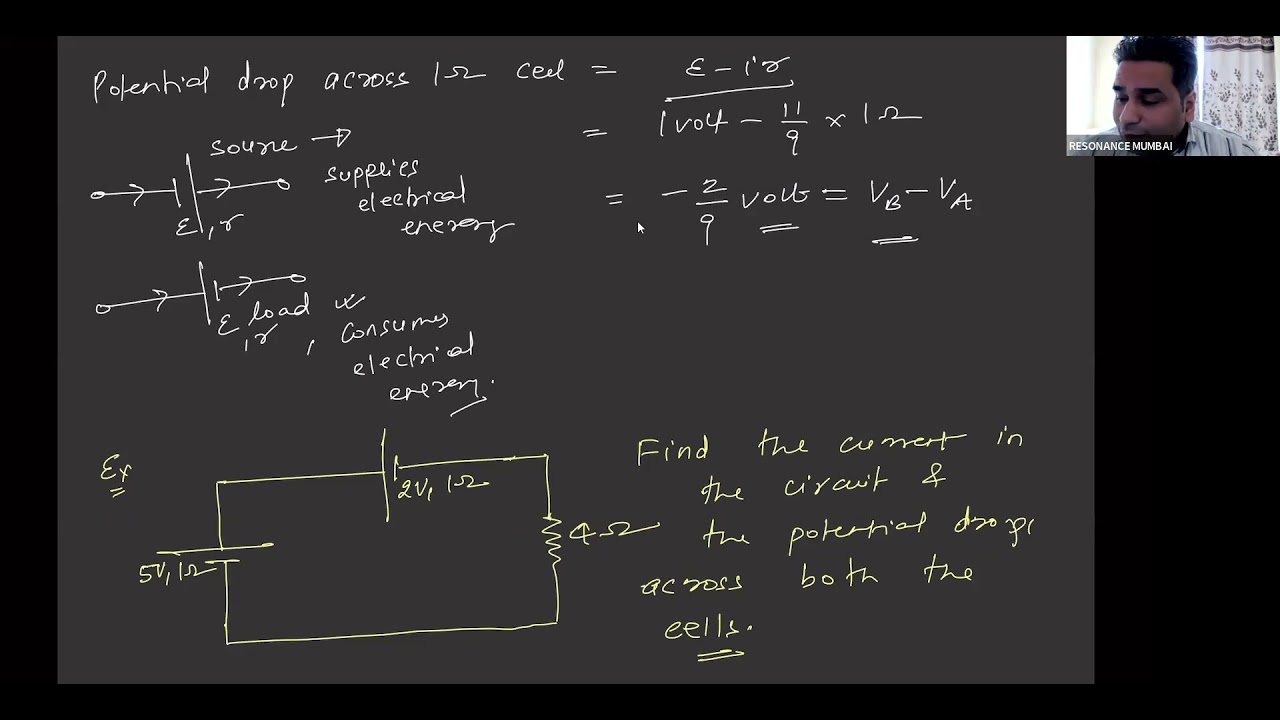 Potential drop across 1Ω cell = ε - ir
= 1 volt - 11/9 × 1Ω
= - 2/9 volt = V_B - V_A
source →
supplies
electrical
energy
ε, r
load
ε, r, consumes
electrical
energy.
Ex
2V, 1Ω
4Ω
5V, 1Ω
Find the current in
the circuit &
the potential drops
across both the
cells.
RESONANCE MUMBAI